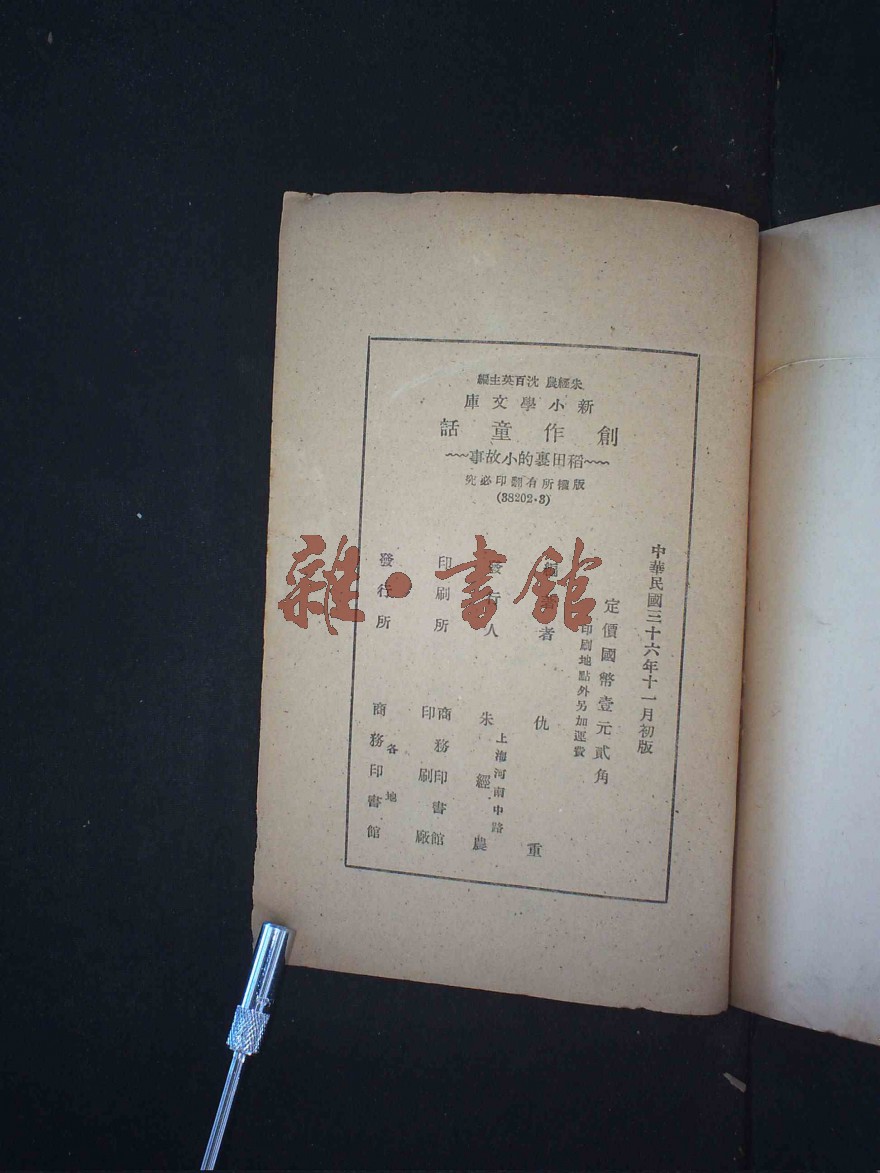 朱經農 沈百英主編
新小學文庫
創作童話
稻田裏的小故事
版權所有翻印必究
(38202·3)
中華民國三十六年十一月初版
定價國幣壹元貳角
印刷地點外另加運費
編著者 仇重
發行人 朱經農
上海河南中路
印刷所 商務印書館
印刷廠
發行所 商務印書館
各地
雜·書館